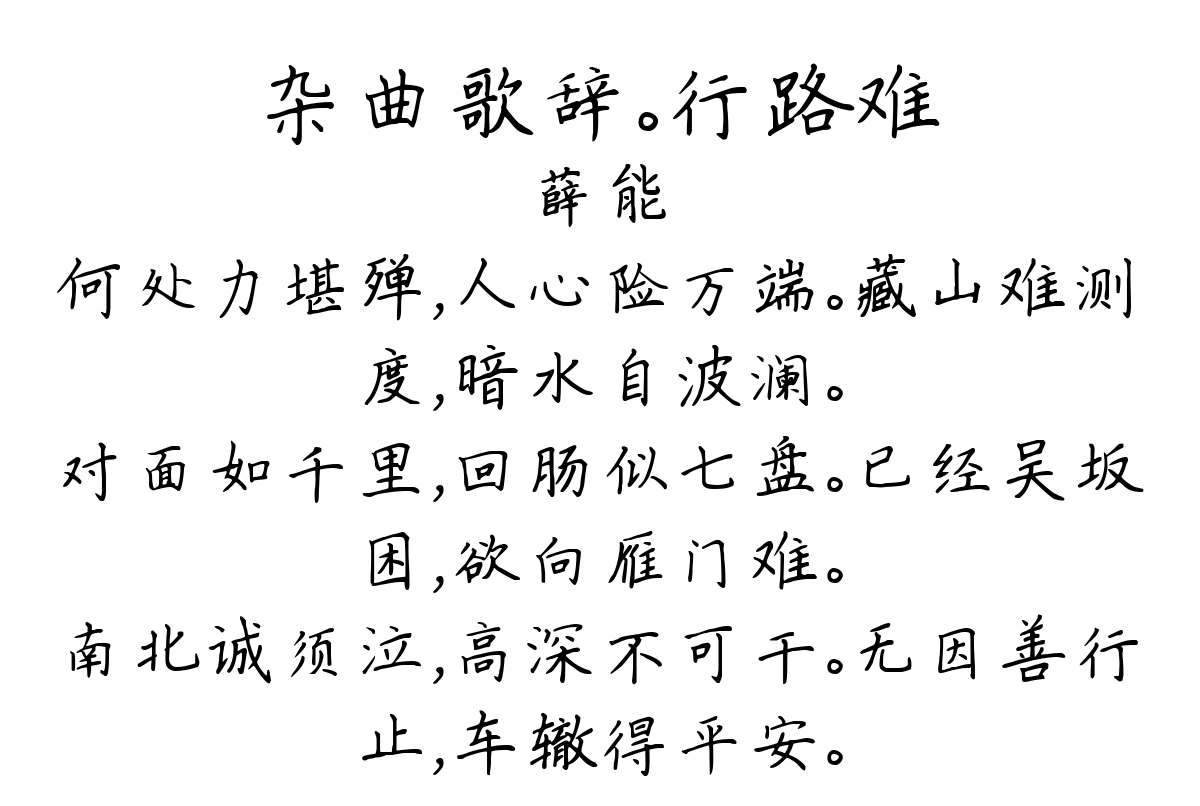 杂曲歌辞。行路难
薛能
何处力堪殚,人心险万端。藏山难测
度,暗水自波澜。
对面如千里,回肠似七盘。已经吴坂
困,欲向雁门难。
南北诚须泣,高深不可干。无因善行
止,车辙得平安。